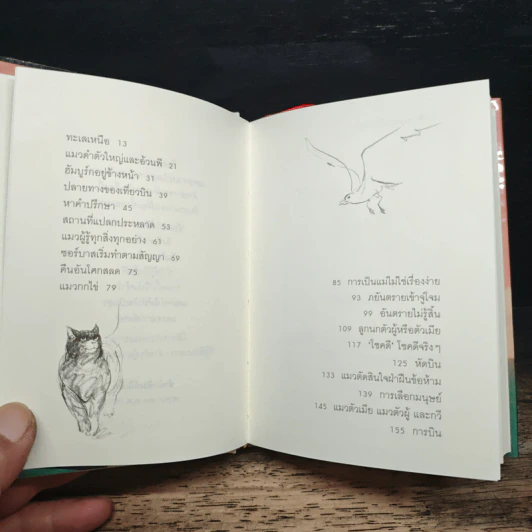 ทะเลเหนือ 13
แมวดำตัวใหญ่และอ้วนพี 21
ฮัมบูร์กอยู่ข้างหน้า 31
ปลายทางของเที่ยวบิน 39
หาคำปรึกษา 45
สถานที่แปลกประหลาด 53
แมวผู้รู้ทุกสิ่งทุกอย่าง 61
ซอร์บาสเริ่มทำตามสัญญา 69
คืนอันโศกสลด 75
แมวกกไข่ 79
85 การเป็นแม่ไม่ใช่เรื่องง่าย
93 ภยันตรายเข้าจู่โจม
99 อันตรายไม่รู้สิ้น
109 ลูกนกตัวผู้หรือตัวเมีย
117 'โชคดี' โชคดีจริงๆ
125 หัดบิน
133 แมวตัดสินใจฝ่าฝืนข้อห้าม
139 การเลือกมนุษย์
145 แมวตัวเมีย แมวตัวผู้ และกวี
155 การบิน